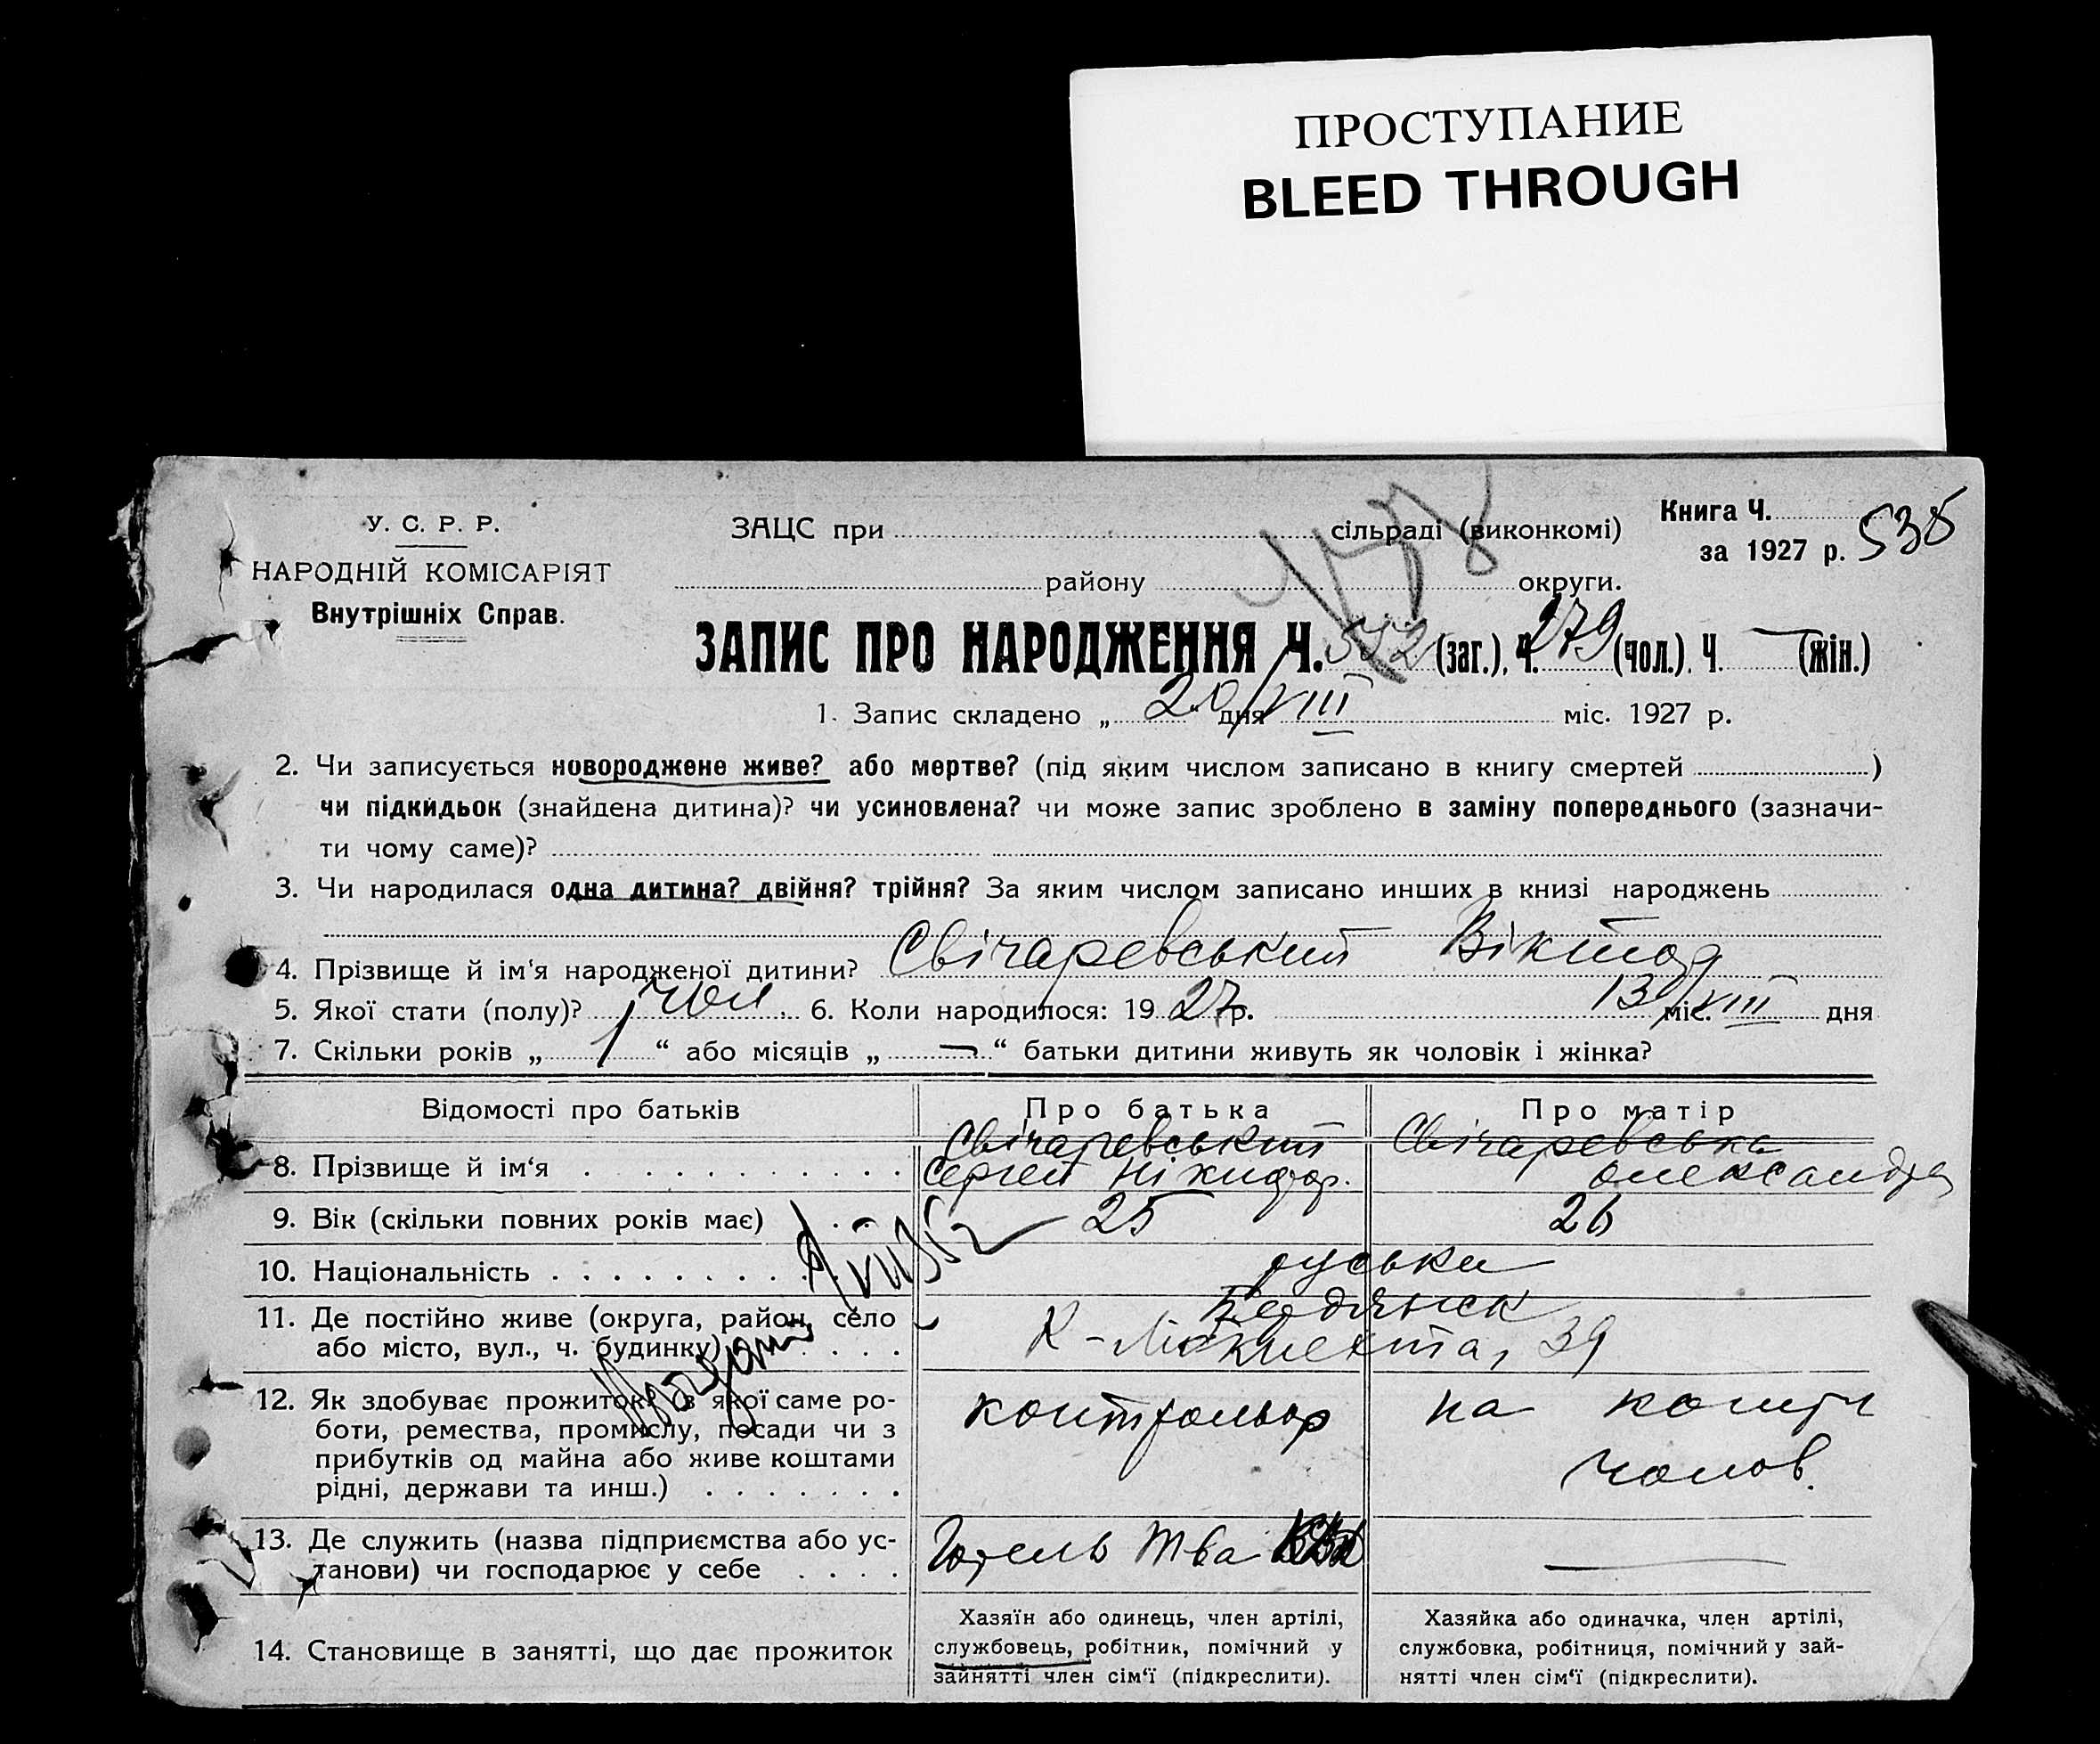 ПРОСТУПАНИЕ
BLEED THROUGH
У. С. Р. Р.
НАРОДНІЙ КОМІСАРІЯТ
Внутрішніх Справ.
ЗАЦС при сільраді (виконкомі)
району округи.
Книга Ч. 535
за 1927 р.
ЗАПИС ПРО НАРОДЖЕННЯ Ч. 572 (заг.), Ч. 279 (чол.), Ч. — (жін.)
1. Запис складено „ 20/VIII “ дня міс. 1927 р.
2. Чи записується новороджене живе? або мертве? (під яким числом записано в книгу смертей )
чи підкидьок (знайдена дитина)? чи усиновлена? чи може запис зроблено в заміну попереднього (зазначи-
ти чому саме)?
3. Чи народилася одна дитина? двійня? трійня? За яким числом записано инших в книзі народжень
4. Прізвище й ім‘я народженої дитини? Свічаревський Віктор
5. Якої стати (полу)? чол. 6. Коли народилося: 1927 р. 13/VIII міс. дня
7. Скільки років „ 1 “ або місяців „ — “ батьки дитини живуть як чоловік і жінка?
Відомості про батьків Про батька Про матір
8. Прізвище й ім‘я Свічаревський Свічаревська
Сергей Нікифор. Олександра
9. Вік (скільки повних років має) 25 26
10. Національність руськи
11. Де постійно живе (округа, район, село Бердянск
або місто, вул., ч. будинку) К-Лібкнехта, 39
12. Як здобуває прожиток? (з якої саме ро- контрольор на кошти
боти, ремества, промислу, посади чи з чолов.
прибутків од майна або живе коштами
рідні, держави та инш.)
13. Де служить (назва підприємства або ус- Готель Тва
танови) чи господарює у себе —
14. Становище в занятті, що дає прожиток
Хазяїн або одинець, член артілі,
службовець, робітник, помічний у
зайнятті член сім‘ї (підкреслити).
Хазяйка або одиначка, член артілі,
службовка, робітниця, помічний у зай-
нятті член сім‘ї (підкреслити).